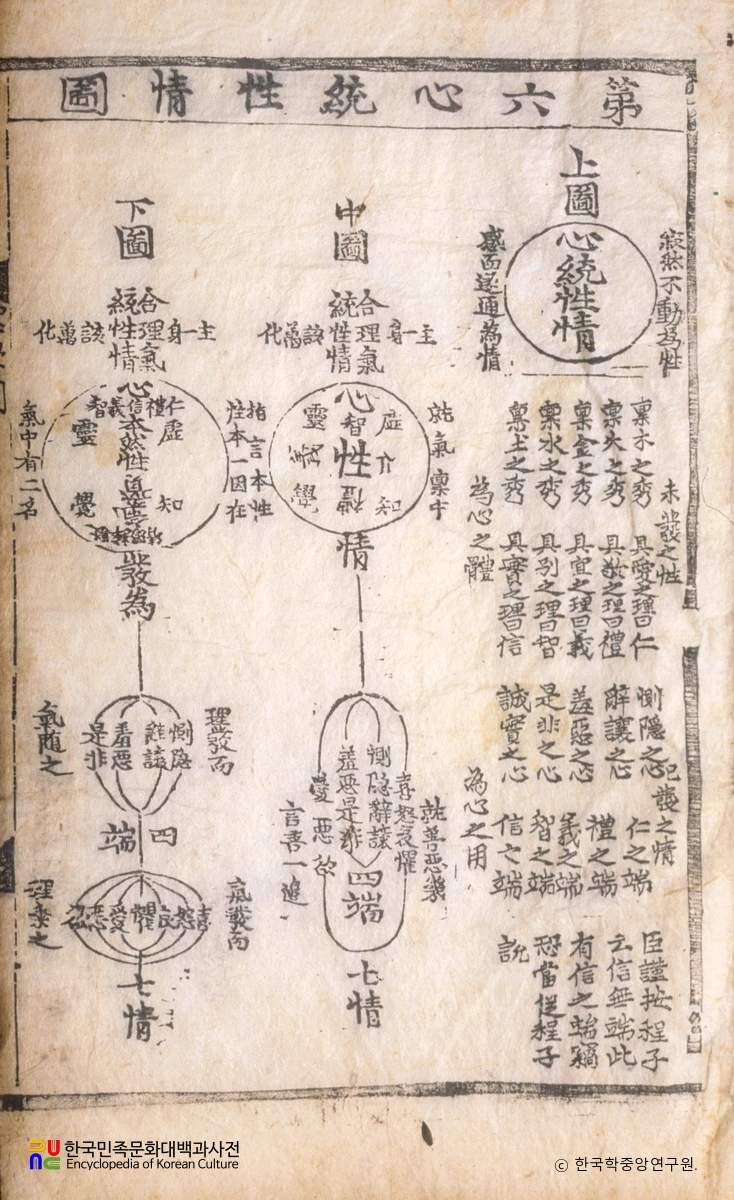 第六心統性情圖
上圖
心統性情
寂然不動為性
感而遂通為情
未發之性
為心之體
稟木之秀 具愛之理曰仁
稟火之秀 具敬之理曰禮
稟金之秀 具宜之理曰義
稟水之秀 具別之理曰智
稟土之秀 具實之理曰信
已發之情
為心之用
惻隱之心 仁之端
辭讓之心 禮之端
羞惡之心 義之端
是非之心 智之端
誠實之心 信之端
臣謹按程子
云信無端此
有信之端竊
恐當從程子
說
中圖
合理氣
統性情
主一身
該萬化
就氣稟中
指言本性
心
性
情
虛
知
靈
覺
仁
智
禮
就善惡幾
言善一邊
惻隱辭讓
羞惡是非
四端
喜怒哀懼
愛惡欲
七情
下圖
合理氣
統性情
主一身
該萬化
性本一因在
氣中有二名
心
仁禮信義智
本然性
虛
知
靈
覺
氣質
發為
理發而
氣隨之
惻隱
辭讓
羞惡
是非
四端
氣發而
理乘之
喜怒哀懼愛惡欲
七情
한국민족문화대백과사전
Encyclopedia of Korean Culture
© 한국학중앙연구원.